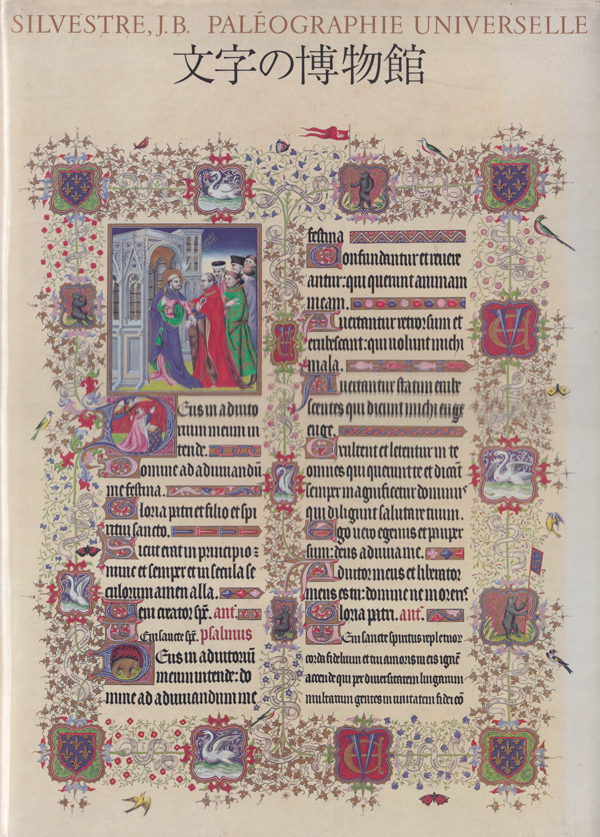 SILVESTRE, J.B. PALÉOGRAPHIE UNIVERSELLE
文字の博物館
Deus in adiuto
rium meum in
tende.
Domine ad adiuvandū
me festina.
Gloria patri et filio et spi
ritui sancto.
Sicut erat in principio z
nunc et semper et in secula se
culorum amen alla.
Veni creator sp̄. ant.
Veni sancte sp̄. psalmus
Deus in adiutoriū
meum intende: do
mine ad adiuvandum me
festina
Confundantur et revere
antur: qui querunt animam
meam.
Avertantur retrorsum et
erubescant: qui volunt michi
mala.
Avertantur statim erube
scentes qui dicunt michi euge
euge.
Exultent et letentur in te
omnes qui querunt te et dicāt
semper magnificetur dominꝰ
qui diligunt salutare tuum.
Ego vero egenus et pauper
sum: deus adiuva me.
Adiutor meus et liberator
meus es tu: domine ne morerꝭ
Gloria patri. ant.
Veni sancte spiritus reple tuor
corda fidelium et tui amoris in eis ignē
accende qui per diversitatem linguarum
multarum gentes in unitatem fidei cō